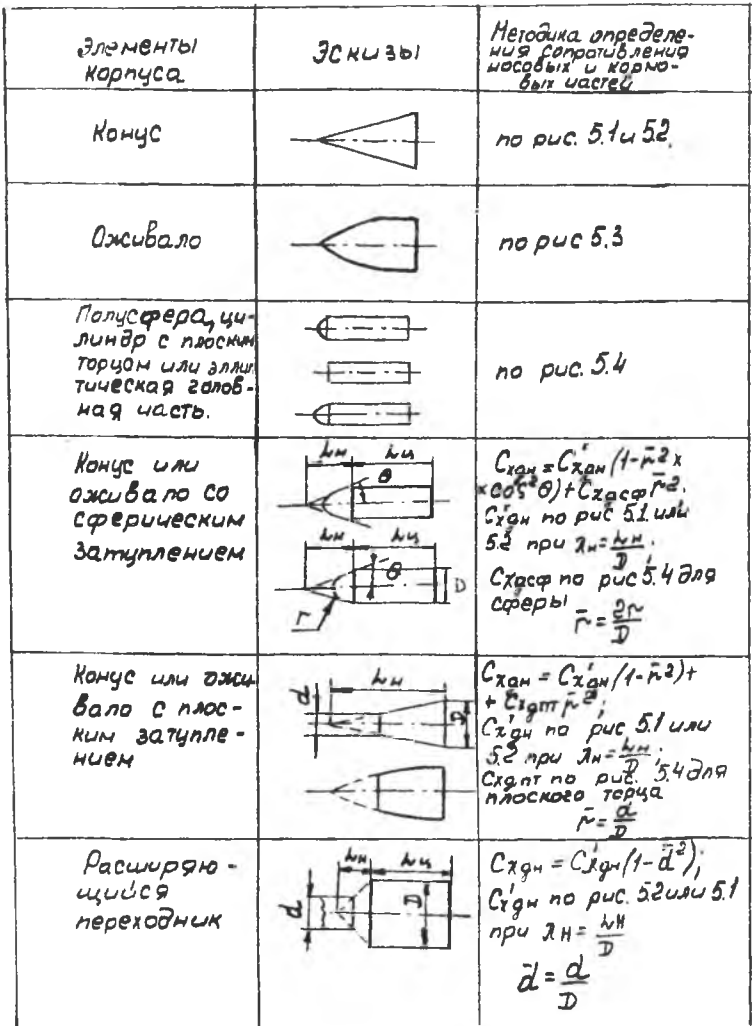 Элементы
корпуса
Эскизы
Методика определе-
ния сопротивления
носовых и кормо-
вых частей
Конус
по рис. 5.1 и 5.2.
Оживало
по рис 5.3
Полусфера, ци-
линдр с плоским
торцом или эллип
тическая голов-
ная часть.
по рис. 5.4
Конус или
оживало со
сферическим
затуплением
Lн Lц
θ
Lн Lц
θ D
r
Cхдн = C'хдн (1-r̄² ×
× cos² θ) + Cхдсф r̄²;
C'хдн по рис 5.1 или
5.2 при λн = Lн/D;
Cхдсф по рис 5.4 для
сферы
r̄ = 2r/D
Конус или ожи
вало с плос-
ким затупле-
нием
Lн
d D
Cхдн = C'хдн (1-r̄²) +
+ Cхдпт r̄²;
C'хдн по рис 5.1 или
5.2 при λн = Lн/D;
Cхдпт по рис. 5.4 для
плоского торца
r̄ = d/D
Расширяю-
щийся
переходник
Lн Lц
d D
Cхдн = C'хдн (1-d̄²);
C'хдн по рис. 5.2 или 5.1
при λн = Lн/D
d̄ = d/D